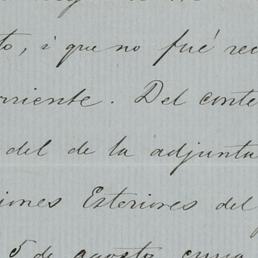 to, i que no fué rec
rriente. Del conte
del de la adjunta
iones Esteriores del
5 de agosto, cuya